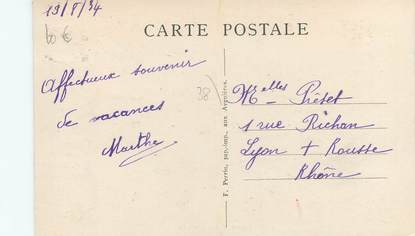 19/8/34
60 €
CARTE POSTALE
Affectueux souvenir
de vacances
Marthe
38
F. Perrin, pap.-imp. aux Avenières.
Melles Prétet
1 rue Richan
Lyon + Rousse
Rhône